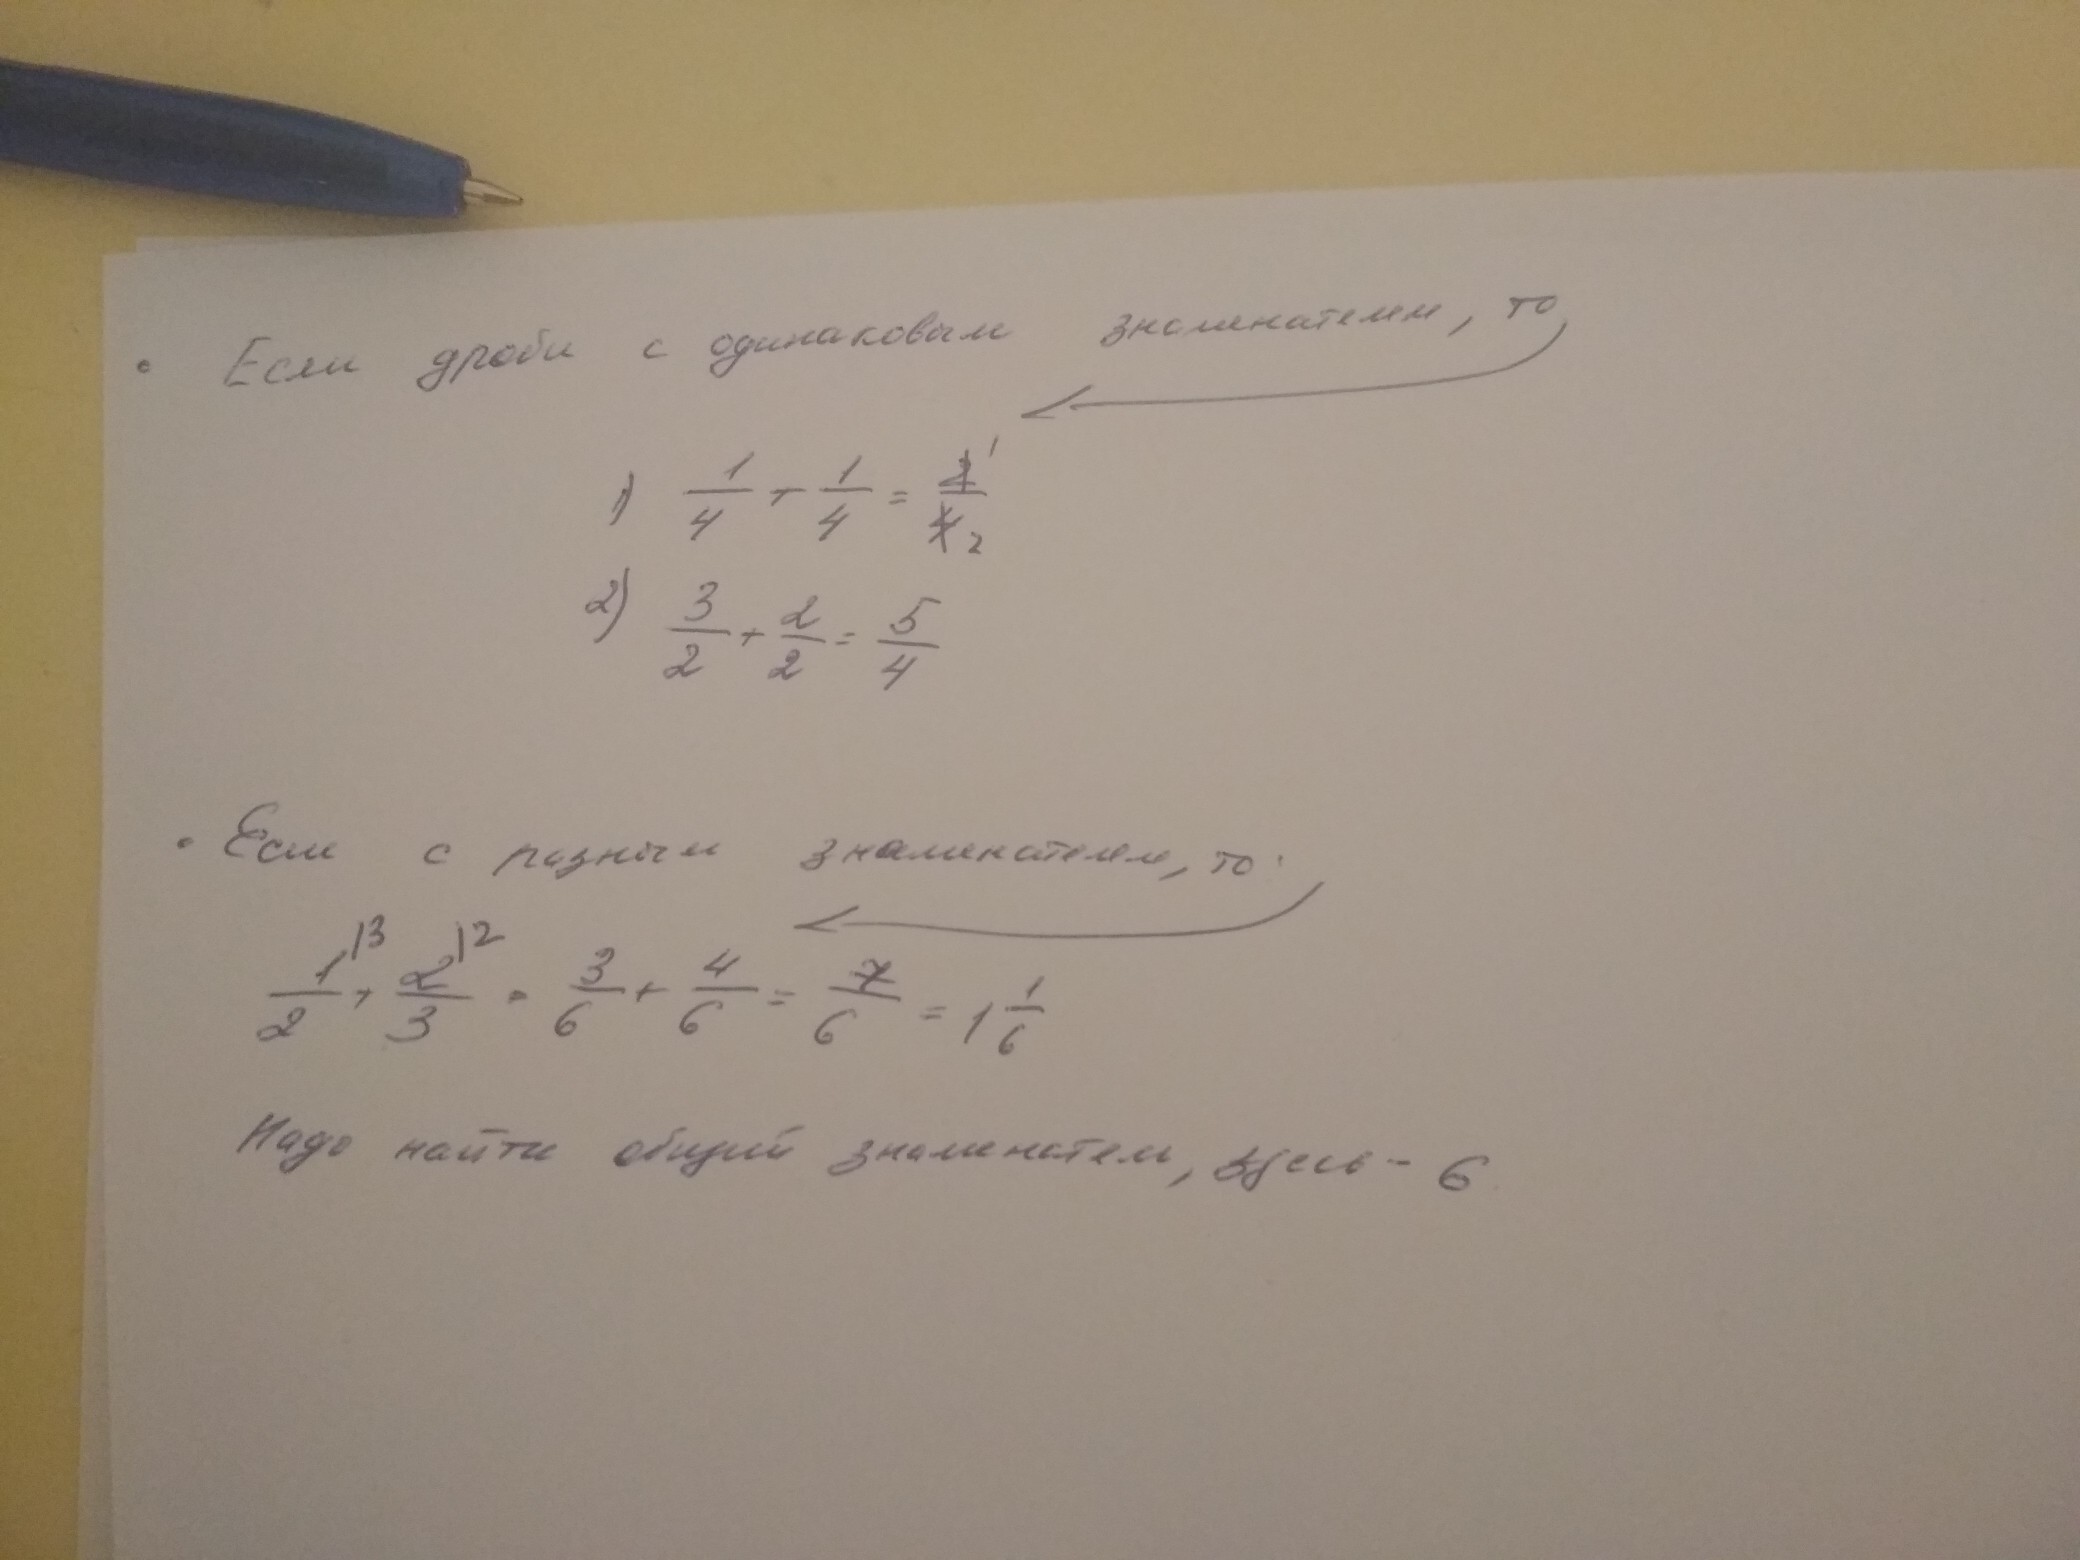 • Если дроби с одинаковым знаменателем, то
1) 1/4 + 1/4 = 2/4 1/2
2) 3/2 + 2/2 = 5/4
• Если с разным знаменателем, то:
1/2 |3 + 2/3 |2 = 3/6 + 4/6 = 7/6 = 1 1/6
Надо найти общий знаменатель, здесь - 6